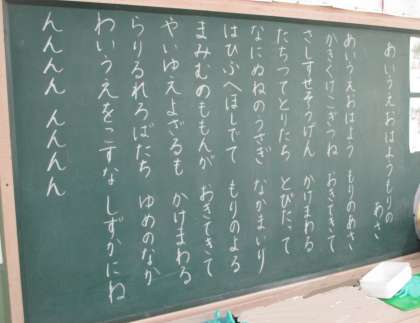 あいうえおはようもりの
あさ
あいうえおはよう　もりのあさ
かきくけこぎつね　おきてきて
さしすせそうげん　かけまわる
たちつてとりたち　とびたって
なにぬねのうさぎ　なかまいり
はひふへほしでて　もりのよる
まみむめもももんが　おきてきて
やいゆえよざるも　かけまわる
らりるれろばたち　ゆめのなか
わいうえをこすな　しずかにね
んんんん　んんんん